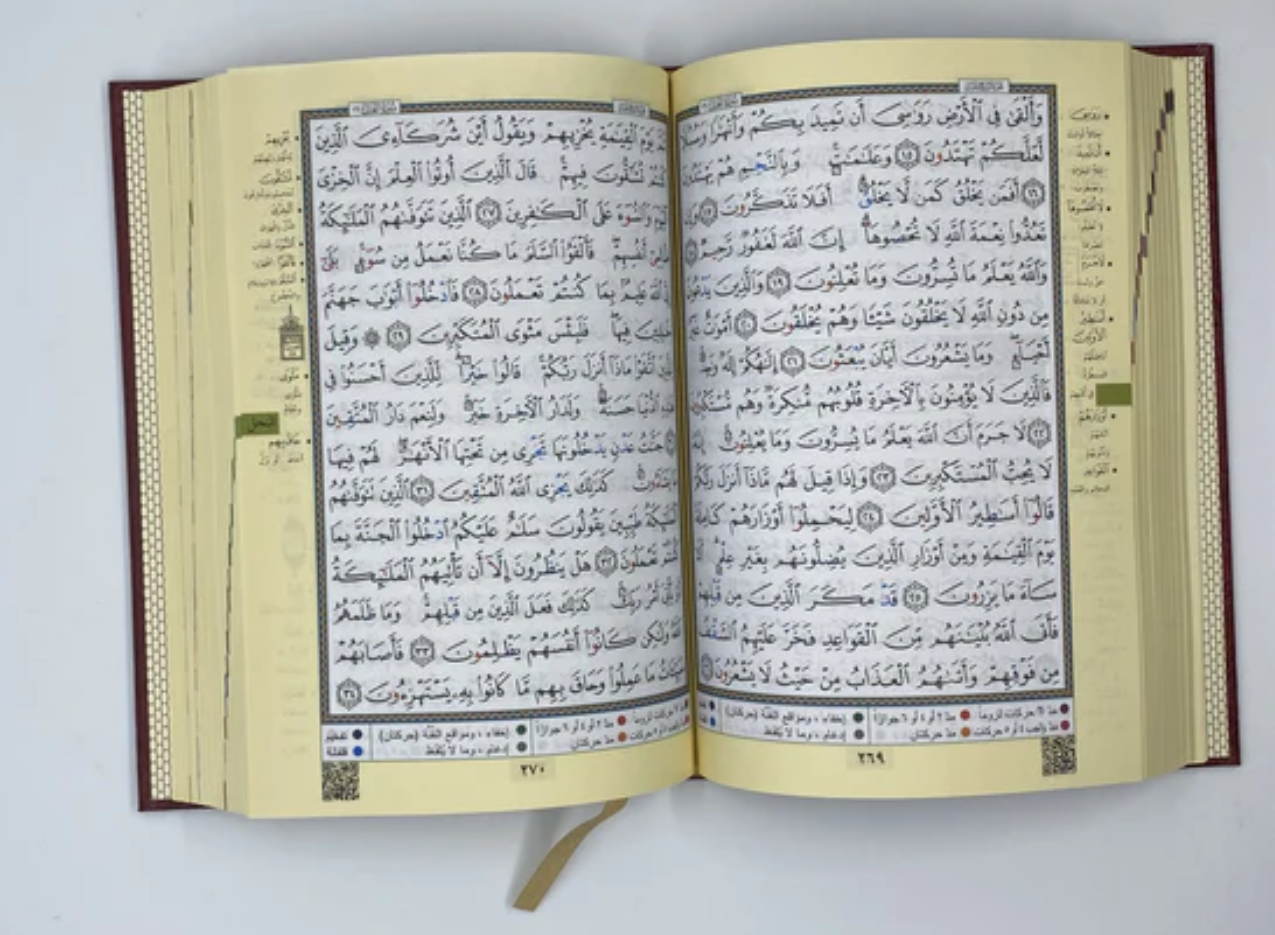 وَأَلْقَىٰ فِي ٱلْأَرْضِ رَوَٰسِيَ أَن تَمِيدَ بِكُمْ وَأَنْهَٰرًا وَسُبُلًا
لَّعَلَّكُمْ تَهْتَدُونَ ١٥ وَعَلَٰمَٰتٍ ۚ وَبِٱلنَّجْمِ هُمْ يَهْتَدُونَ
١٦ أَفَمَن يَخْلُقُ كَمَن لَّا يَخْلُقُ ۗ أَفَلَا تَذَكَّرُونَ ١٧ وَإِن
تَعُدُّوا۟ نِعْمَةَ ٱللَّهِ لَا تُحْصُوهَآ ۗ إِنَّ ٱللَّهَ لَغَفُورٌ رَّحِيمٌ
وَٱللَّهُ يَعْلَمُ مَا تُسِرُّونَ وَمَا تُعْلِنُونَ ١٩ وَٱلَّذِينَ يَدْعُونَ
مِن دُونِ ٱللَّهِ لَا يَخْلُقُونَ شَيْـًٔا وَهُمْ يُخْلَقُونَ ٢٠ أَمْوَٰتٌ غَيْرُ
أَحْيَآءٍ ۖ وَمَا يَشْعُرُونَ أَيَّانَ يُبْعَثُونَ ٢١ إِلَٰهُكُمْ إِلَٰهٌ وَٰحِدٌ ۚ
فَٱلَّذِينَ لَا يُؤْمِنُونَ بِٱلْءَاخِرَةِ قُلُوبُهُم مُّنكِرَةٌ وَهُم مُّسْتَكْبِرُونَ
٢٢ لَا جَرَمَ أَنَّ ٱللَّهَ يَعْلَمُ مَا يُسِرُّونَ وَمَا يُعْلِنُونَ ۚ إِنَّهُۥ
لَا يُحِبُّ ٱلْمُسْتَكْبِرِينَ ٢٣ وَإِذَا قِيلَ لَهُم مَّاذَآ أَنزَلَ رَبُّكُمْ
قَالُوٓا۟ أَسَٰطِيرُ ٱلْأَوَّلِينَ ٢٤ لِيَحْمِلُوٓا۟ أَوْزَارَهُمْ كَامِلَةً
يَوْمَ ٱلْقِيَٰمَةِ وَمِنْ أَوْزَارِ ٱلَّذِينَ يُضِلُّونَهُم بِغَيْرِ عِلْمٍ ۗ أَلَا
سَآءَ مَا يَزِرُونَ ٢٥ قَدْ مَكَرَ ٱلَّذِينَ مِن قَبْلِهِمْ
فَأَتَى ٱللَّهُ بُنْيَٰنَهُم مِّنَ ٱلْقَوَاعِدِ فَخَرَّ عَلَيْهِمُ ٱلسَّقْفُ
مِن فَوْقِهِمْ وَأَتَىٰهُمُ ٱلْعَذَابُ مِنْ حَيْثُ لَا يَشْعُرُونَ ٢٦
مدّ ٦ حركات لزوماً مدّ ٢ أو ٤ أو ٦ جوازاً إخفاء، ومواقع الغنّة (حركتان)
مدّ واجب ٤ أو ٥ حركات مدّ حركتان إدغام، وما لا يلفظ
٢٦٩
يَوْمَ ٱلْقِيَٰمَةِ يُخْزِيهِمْ وَيَقُولُ أَيْنَ شُرَكَآءِيَ ٱلَّذِينَ
كُنتُمْ تُشَٰٓقُّونَ فِيهِمْ ۚ قَالَ ٱلَّذِينَ أُوتُوا۟ ٱلْعِلْمَ إِنَّ ٱلْخِزْيَ
ٱلْيَوْمَ وَٱلسُّوٓءَ عَلَى ٱلْكَٰفِرِينَ ٢٧ ٱلَّذِينَ تَتَوَفَّىٰهُمُ ٱلْمَلَٰٓئِكَةُ
ظَالِمِيٓ أَنفُسِهِمْ ۖ فَأَلْقَوُا۟ ٱلسَّلَمَ مَا كُنَّا نَعْمَلُ مِن سُوٓءٍۭ ۚ بَلَىٰٓ
إِنَّ ٱللَّهَ عَلِيمٌۢ بِمَا كُنتُمْ تَعْمَلُونَ ٢٨ فَٱدْخُلُوٓا۟ أَبْوَٰبَ جَهَنَّمَ
خَٰلِدِينَ فِيهَا ۖ فَلَبِئْسَ مَثْوَى ٱلْمُتَكَبِّرِينَ ٢٩ ۞ وَقِيلَ
لِلَّذِينَ ٱتَّقَوْا۟ مَاذَآ أَنزَلَ رَبُّكُمْ ۚ قَالُوا۟ خَيْرًا ۗ لِّلَّذِينَ أَحْسَنُوا۟ فِي
هَٰذِهِ ٱلدُّنْيَا حَسَنَةٌ ۚ وَلَدَارُ ٱلْءَاخِرَةِ خَيْرٌ ۚ وَلَنِعْمَ دَارُ ٱلْمُتَّقِينَ
جَنَّٰتُ عَدْنٍ يَدْخُلُونَهَا تَجْرِي مِن تَحْتِهَا ٱلْأَنْهَٰرُ ۖ لَهُمْ فِيهَا
مَا يَشَآءُونَ ۚ كَذَٰلِكَ يَجْزِي ٱللَّهُ ٱلْمُتَّقِينَ ٣١ ٱلَّذِينَ تَتَوَفَّىٰهُمُ
ٱلْمَلَٰٓئِكَةُ طَيِّبِينَ ۙ يَقُولُونَ سَلَٰمٌ عَلَيْكُمُ ٱدْخُلُوا۟ ٱلْجَنَّةَ بِمَا
كُنتُمْ تَعْمَلُونَ ٣٢ هَلْ يَنظُرُونَ إِلَّآ أَن تَأْتِيَهُمُ ٱلْمَلَٰٓئِكَةُ
أَوْ يَأْتِيَ أَمْرُ رَبِّكَ ۚ كَذَٰلِكَ فَعَلَ ٱلَّذِينَ مِن قَبْلِهِمْ ۚ وَمَا ظَلَمَهُمُ
ٱللَّهُ وَلَٰكِن كَانُوٓا۟ أَنفُسَهُمْ يَظْلِمُونَ ٣٣ فَأَصَابَهُمْ
سَيِّـَٔاتُ مَا عَمِلُوا۟ وَحَاقَ بِهِم مَّا كَانُوا۟ بِهِۦ يَسْتَهْزِءُونَ ٣٤
النحل
مدّ ٦ حركات لزوماً مدّ ٢ أو ٤ أو ٦ جوازاً إخفاء، ومواقع الغنّة (حركتان) تفخيم
حركات مدّ حركتان إدغام، وما لا يلفظ قلقلة
٢٧٠